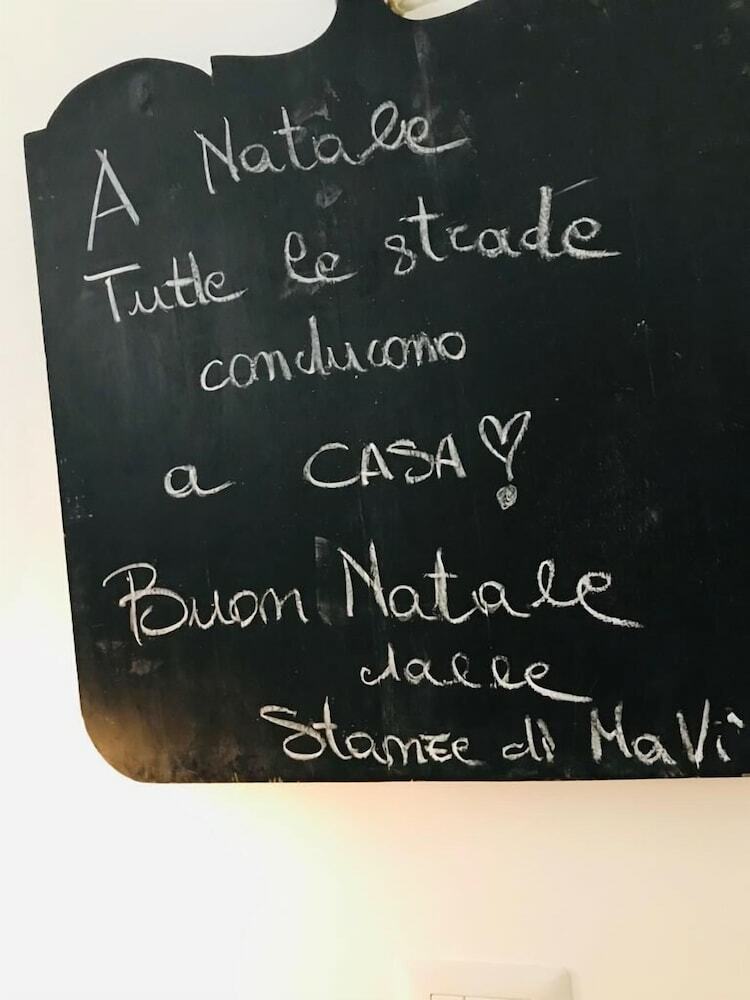 A Natale
Tutte le strade
conducono
a CASA!
Buon Natale
dalle
Stanze di MaVì